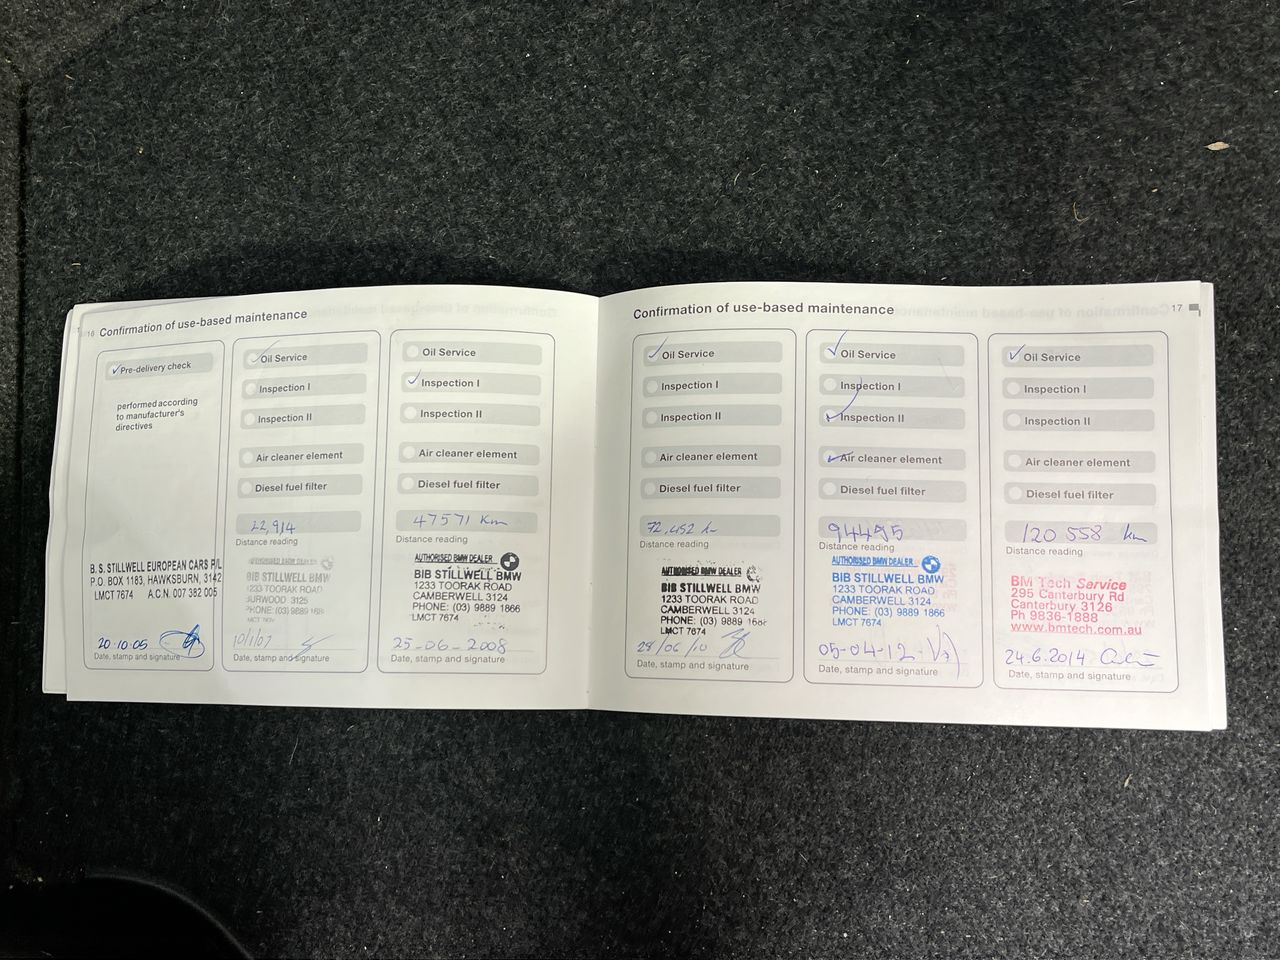 16 Confirmation of use-based maintenance
Pre-delivery check
performed according
to manufacturer's
directives
B. S. STILLWELL EUROPEAN CARS P/L
P.O. BOX 1183, HAWKSBURN, 3142
LMCT 7674 A.C.N. 007 382 005
20·10·05
Date, stamp and signature
Oil Service
Inspection I
Inspection II
Air cleaner element
Diesel fuel filter
22,914
Distance reading
AUTHORISED BMW DEALER
BIB STILLWELL BMW
1233 TOORAK ROAD
BURWOOD 3125
PHONE: (03) 9889
10/1/07
Date, stamp and signature
Oil Service
Inspection I
Inspection II
Air cleaner element
Diesel fuel filter
47571 Km
Distance reading
AUTHORISED BMW DEALER
BIB STILLWELL BMW
1233 TOORAK ROAD
CAMBERWELL 3124
PHONE: (03) 9889 1866
LMCT 7674
25-06-2008
Date, stamp and signature
Confirmation of use-based maintenance 17
Oil Service
Inspection I
Inspection II
Air cleaner element
Diesel fuel filter
72,452 k
Distance reading
AUTHORISED BMW DEALER
BIB STILLWELL BMW
1233 TOORAK ROAD
CAMBERWELL 3124
PHONE: (03) 9889
LMCT 7674
/06/10
Date, stamp and signature
Oil Service
Inspection I
Inspection II
Air cleaner element
Diesel fuel filter
94495
Distance reading
AUTHORISED BMW DEALER
BIB STILLWELL BMW
1233 TOORAK ROAD
CAMBERWELL 3124
PHONE: (03) 9889 1866
LMCT 7674
05-04-12
Date, stamp and signature
Oil Service
Inspection I
Inspection II
Air cleaner element
Diesel fuel filter
120 558 km
Distance reading
BM Tech Service
295 Canterbury Rd
Canterbury 3126
Ph 9836-1888
www.bmtech.com.au
24.6.2014
Date, stamp and signature